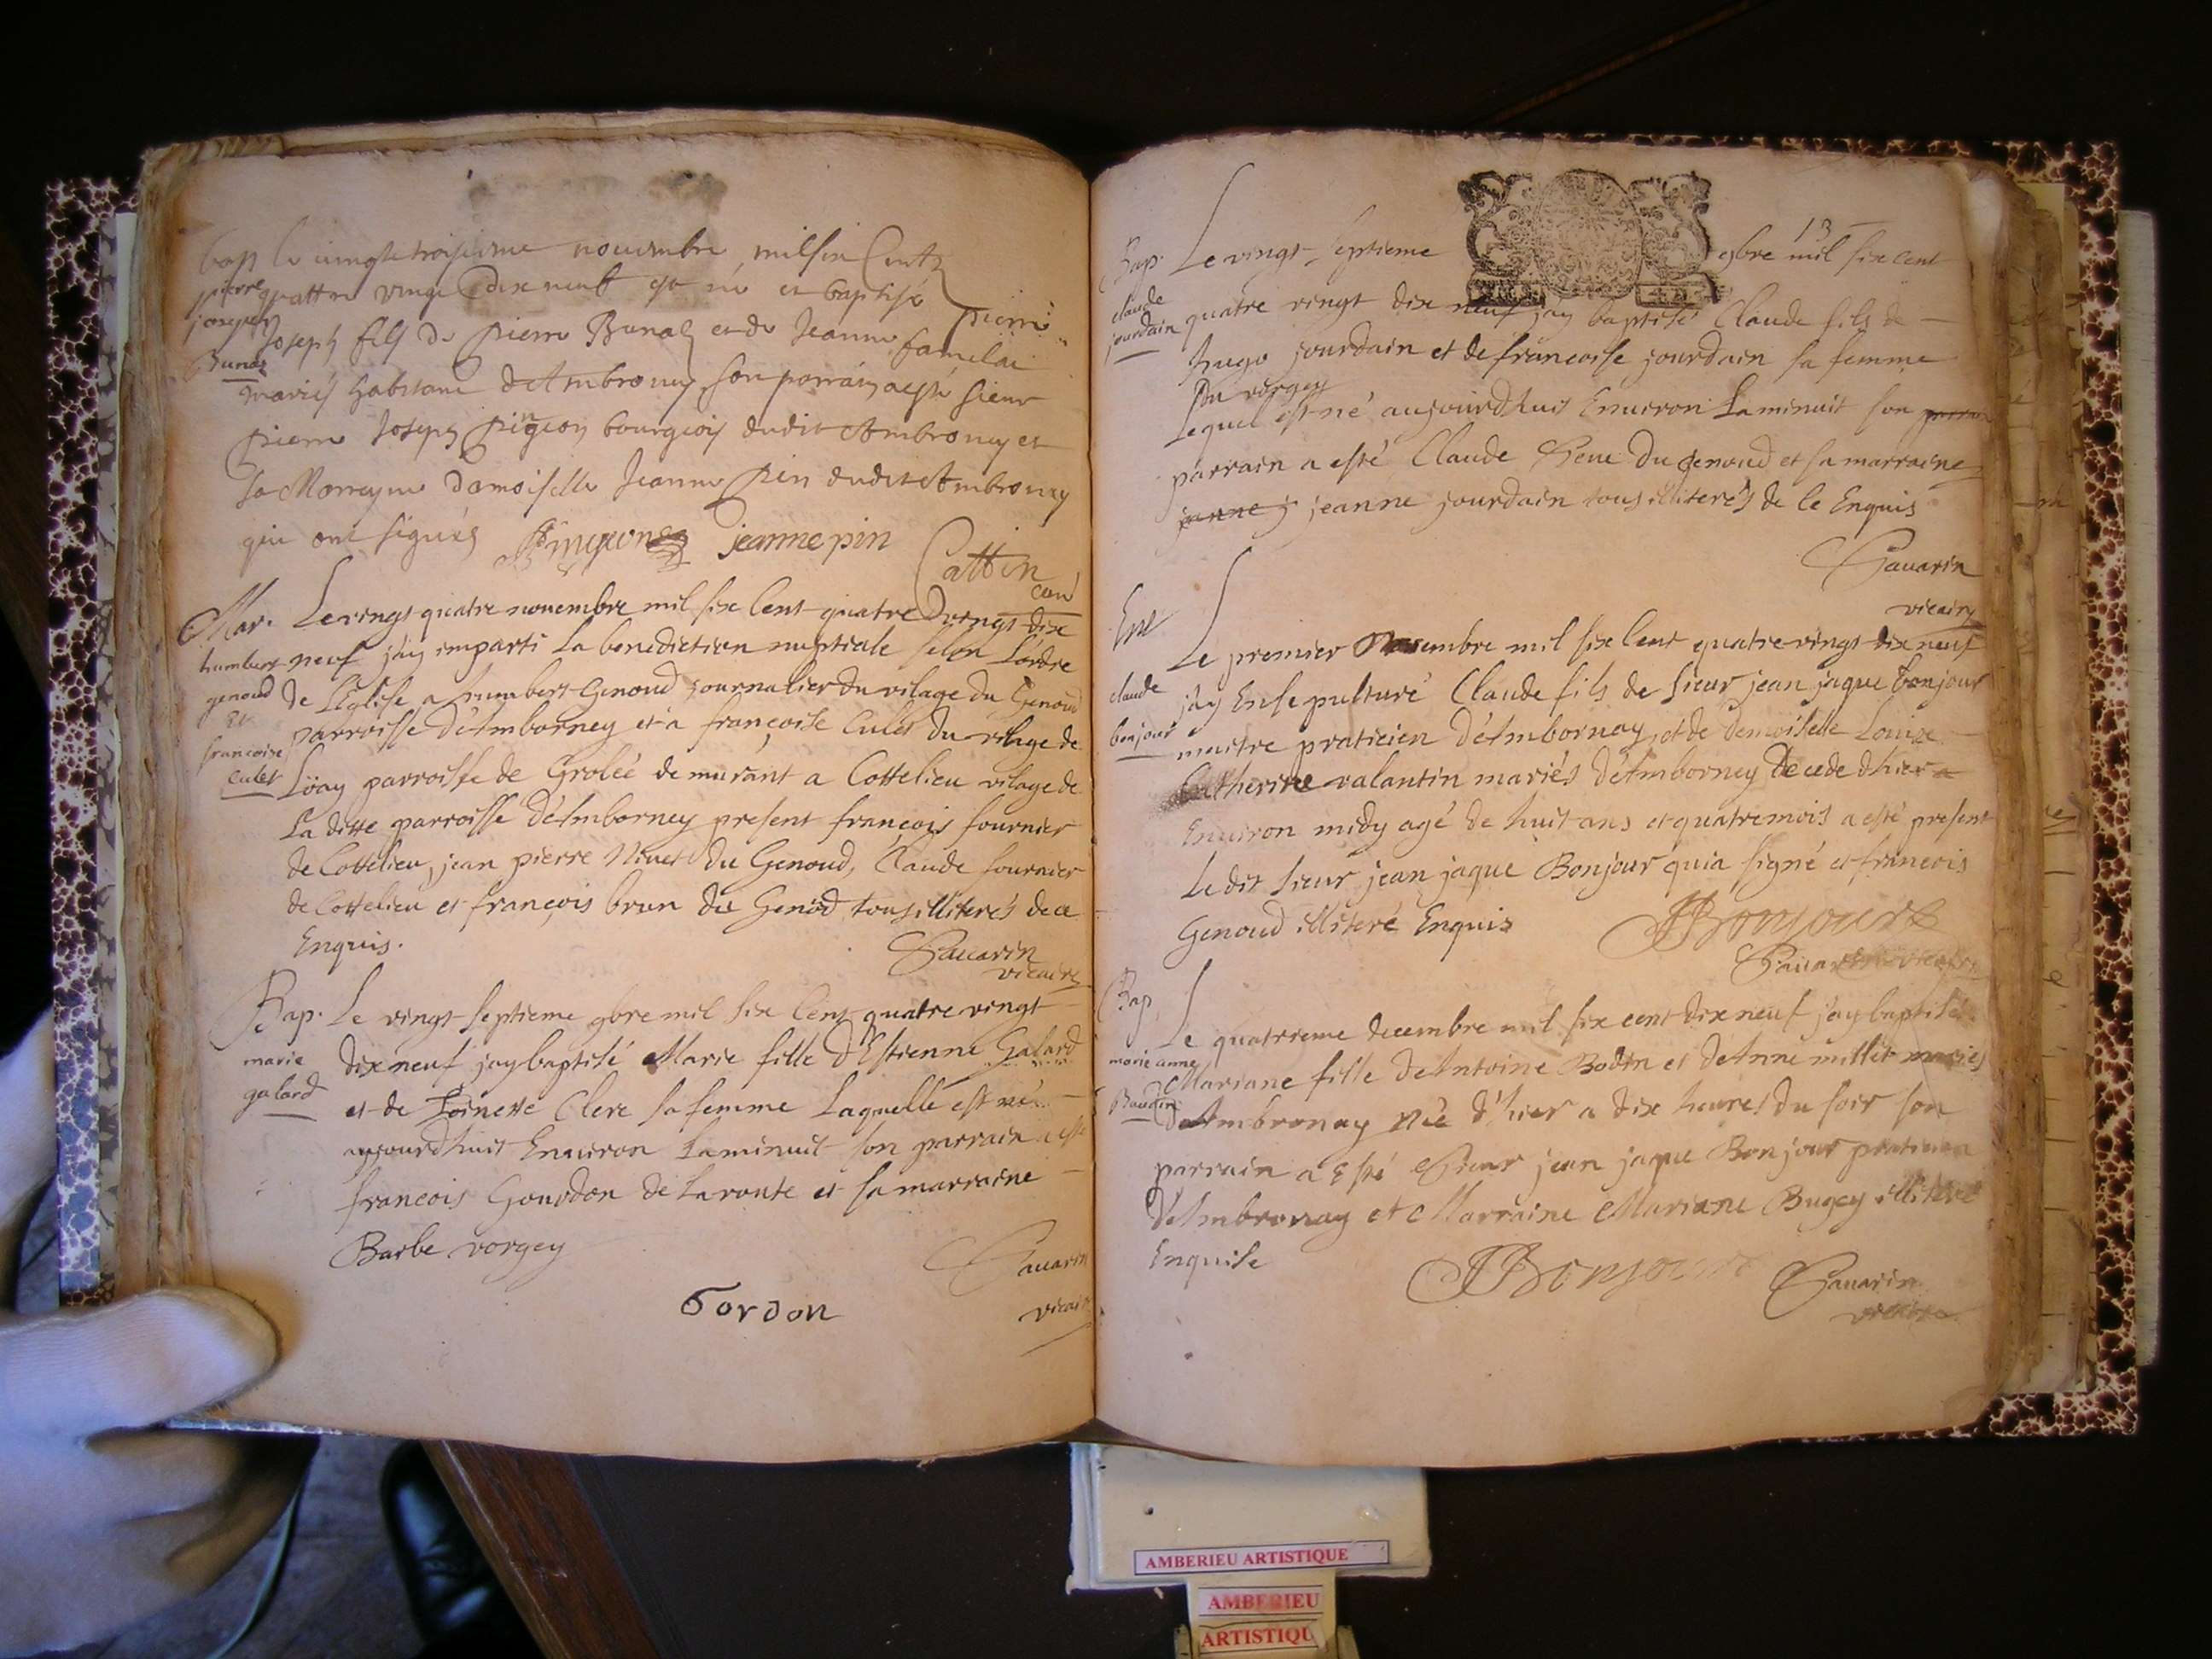 bap le vingte troisieme novembre milsix Cents
pierre quattre vingt dix neuf est né et baptisé
joseph pierre
Joseph fils de pierre Bunaz et de Jeanne famelai
Bunaz
mariés habitans d'Ambronay son parrain a esté sieur
pierre Joseph pingeon bourgeois dudit Ambronay et
sa Marreyne damoiselle Jeanne pin dudit Ambronay
qui ont signés pingeon jeanne pin
Cattin
curé
Mar. Le vingt quatre novembre mil six Cent quatre vingt dix
humbert neuf j'ay imparti la benediction nuptiale selon l'ordre
genoud de l'Eglise a humbert Genoud journalier du vilage du Genoud
Et parroisse d'Amborney et a françoise Culet du vilage de
francoise
Culet Löay parroisse de Grolée demurant a Cottelieu vilage de
La ditte parroisse d'Amborney present françois fournier
de Cottelieu, jean pierre Nivet du Genoud, Claude fournier
de Cottelieu et françois brun du Genod tous illiterés de ce
Enquis.
Savarin
vicaire
Bap. Le vingt septieme 9bre mil six Cent quatre vingt
marie dix neuf jay baptisé Marie fille d'Estienne Galard
galard et de Toinette Clerc sa femme Laquelle est née
aujourdhuit Environ La minuit son parrain a esté
francois Gourdon de La route et sa marraine
Barbe vorgey
Savarin
Gordon
vicaire
13
Bap. Le vingt septieme 9bre mil six cent
claude quatre vingt dix neuf jay baptisé Claude fils de
jourdain
hugo jourdain et de francoise jourdain sa femme
Du vorgey
Lequel est né aujourdhuis Environ La minuit son parrain
parrain a esté Claude Seve du Genoud et sa marraine
janne j jeanne jourdain tous illiterés de ce Enquis
Savarin
vicaire
Ent Le premier Novembre mil six Cent quatre vingt dix neuf
claude j'ay Ensepulturé Claude fils de sieur jean jaque bonjour
bonjour maitre praticien d'Ambornay et de demoiselle Louise
Catherine valantin mariés d'Amborney Decede d'hier a
Environ midy agé de huit ans et quatre mois a esté present
Le dit sieur jean jaque Bonjour qui a signé et francois
Genoud illiteré Enquis JJBonjour
Savarin vicaire
Bap Le quatrieme decembre mil six cent dix neuf j'ay baptisé
marie anne Mariane fille de Antoine Bodin et de Anne millet mariés
Baudin d'Ambronay née d'hier a dix heures du soir son
parrain a Esté Sieur jean jaque Bonjour praticien
d'Ambronay et Marraine Mariane Bugey illiteré
Enquise
JJBonjour Savarin
vicaire
AMBERIEU ARTISTIQUE
AMBERIEU
ARTISTIQU